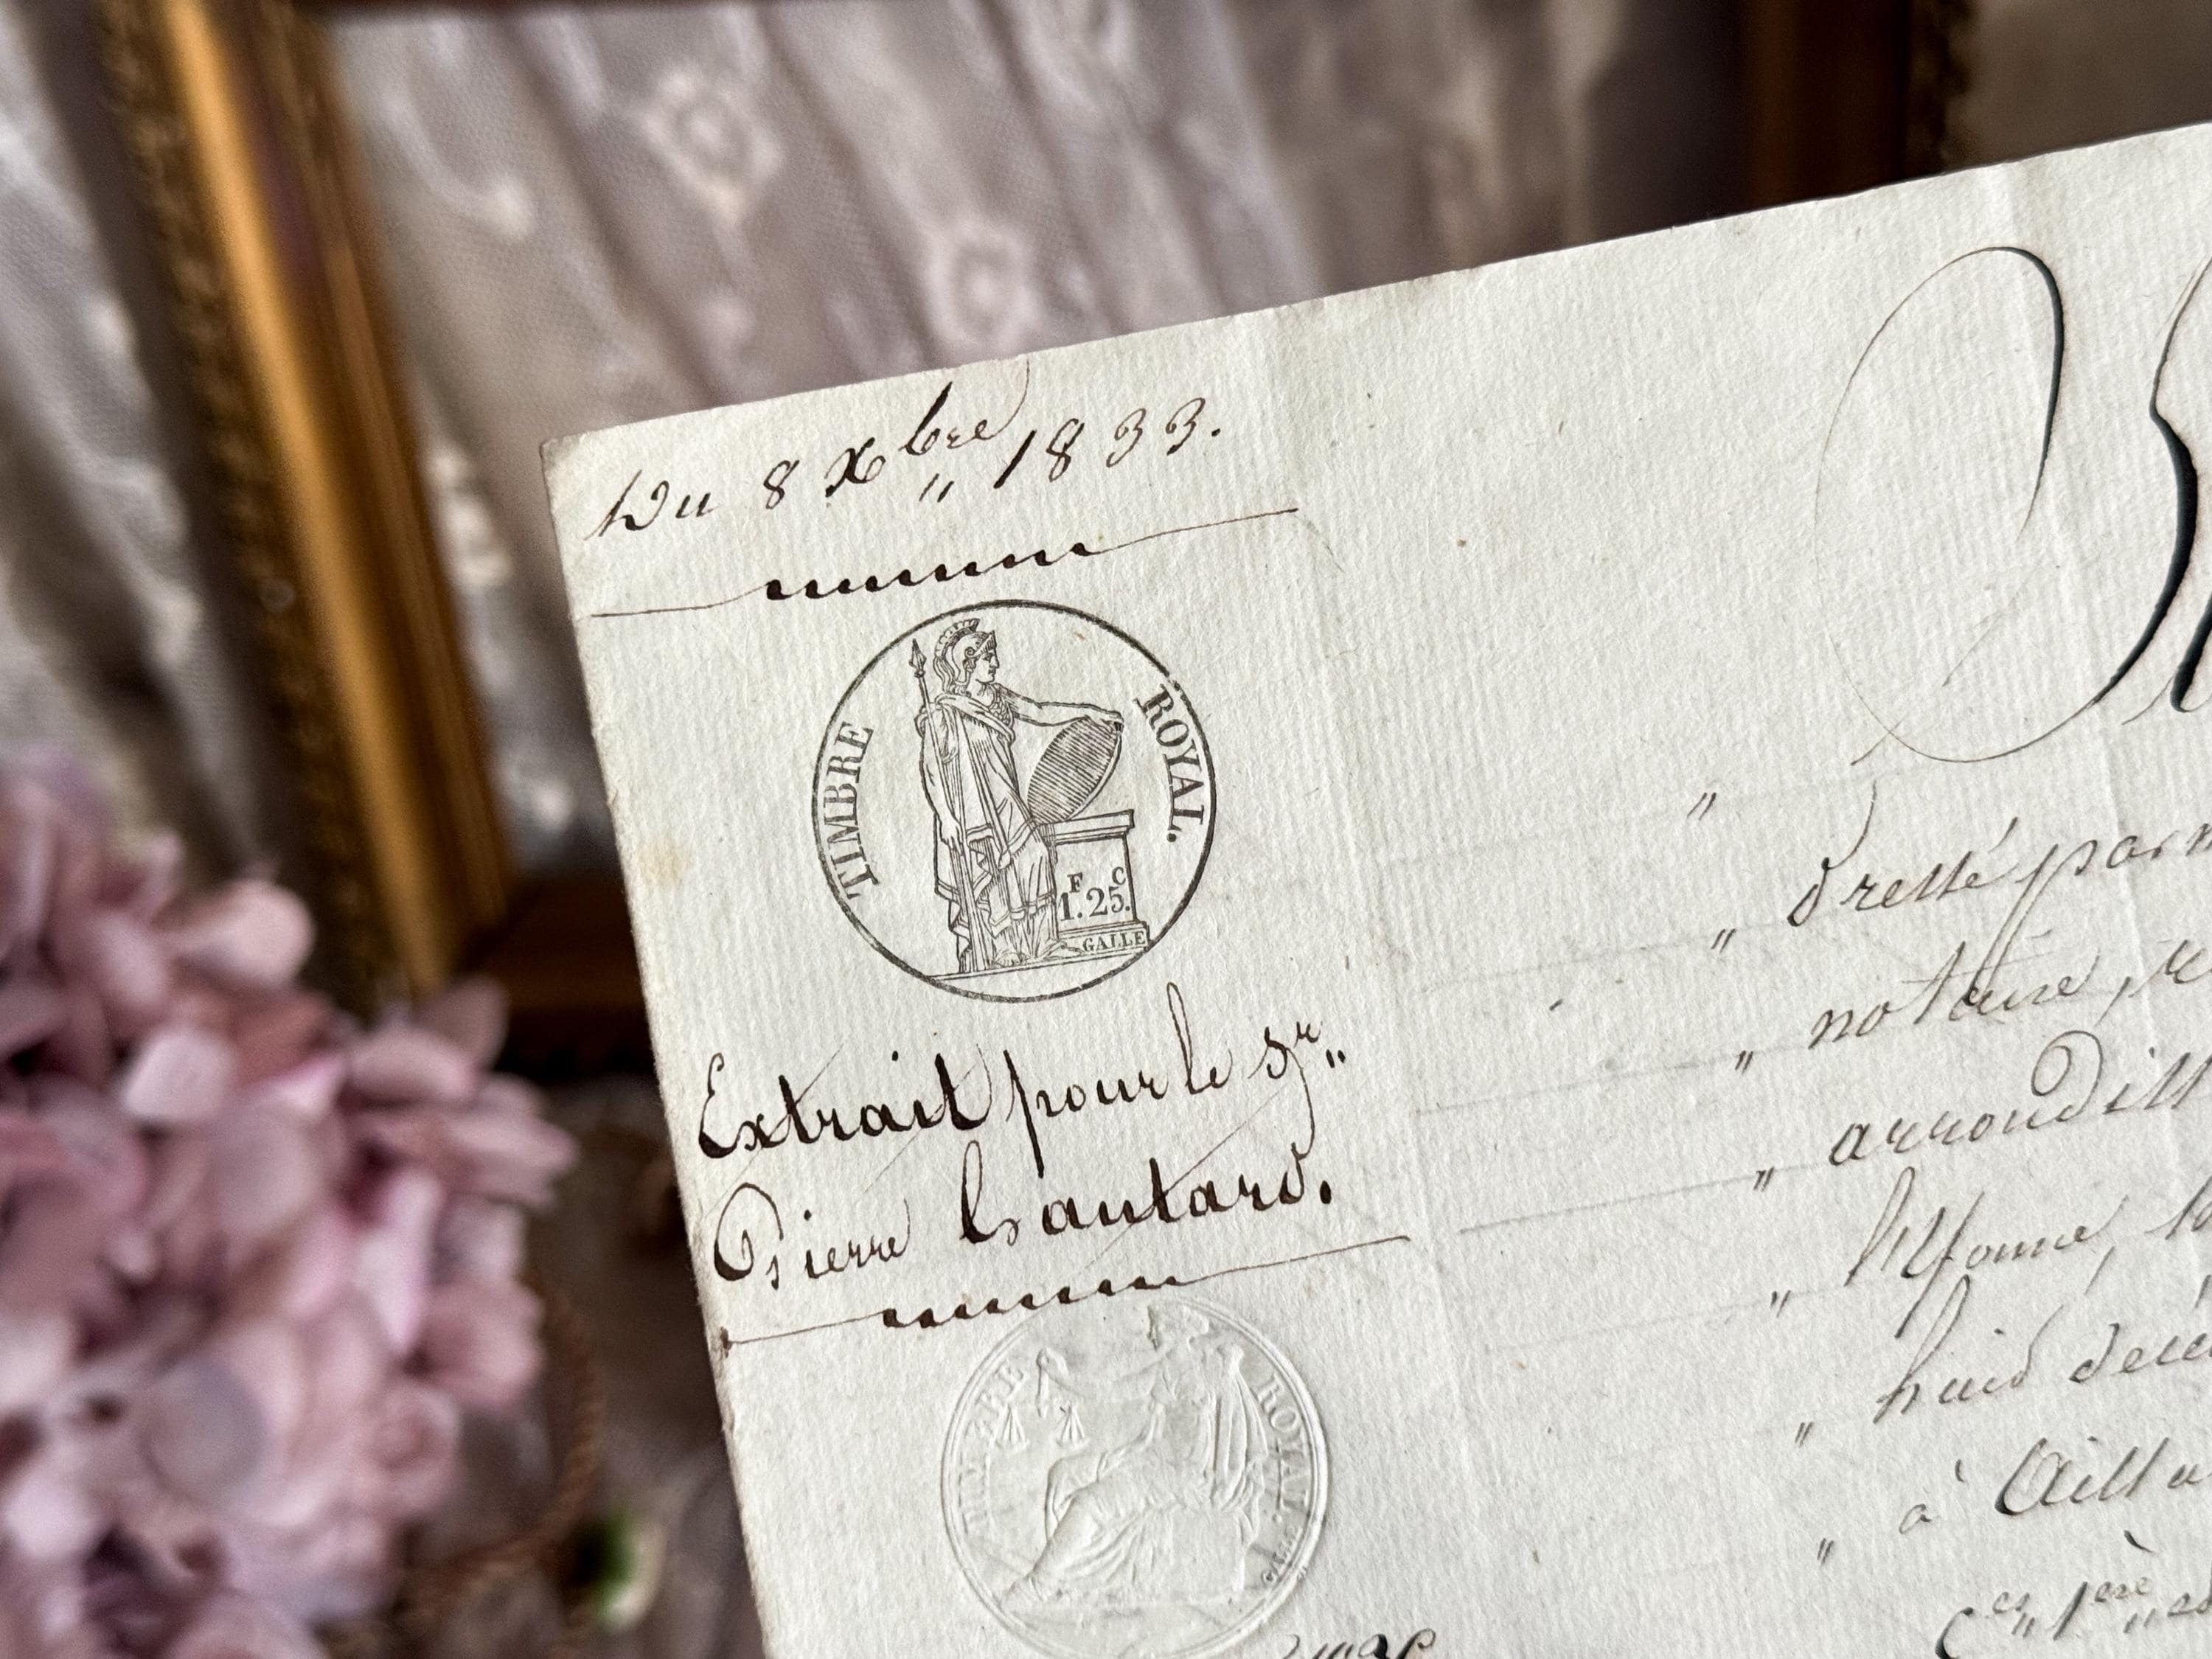 Du 8 Xbre „ 1833.
TIMBRE ROYAL.
F C
1. 25.
GALLE
Extrait pour le Sr „
Pierre Hautard.
TIMBRE ROYAL.
„
„ dressé par
„ notaire,
„ arrondiss
„ l'Yonne,
„ huit déce
„ à Ailla